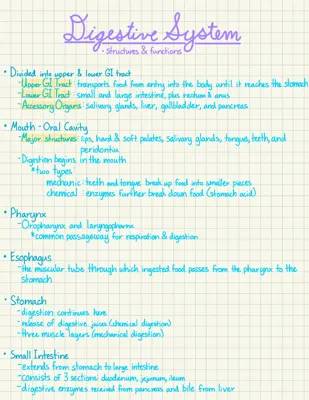 Digestive System
• structures & functions
• Divided into upper & lower GI tract
- Upper GI Tract: transports food from entry into the body until it reaches the stomach
- Lower GI Tract: small and large intestine, plus rectum & anus
- Accessory Organs: salivary glands, liver, gallbladder, and pancreas
• Mouth - Oral Cavity
- Major structures: lips, hard & soft palates, salivary glands, tongue, teeth, and
periodontia
- Digestion begins in the mouth
*two types
mechanic - teeth and tongue break up food into smaller pieces
chemical - enzymes further break down food (stomach acid)
• Pharynx
- Oropharynx and laryngopharynx
*common passageway for respiration & digestion
• Esophagus
- the muscular tube through which ingested food passes from the pharynx to the
stomach
• Stomach
- digestion continues here
- release of digestive juices (chemical digestion)
- three muscle layers (mechanical digestion)
• Small Intestine
- extends from stomach to large intestine
- consists of 3 sections: duodenum, jejunum, ileum
- digestive enzymes received from pancreas and bile from liver